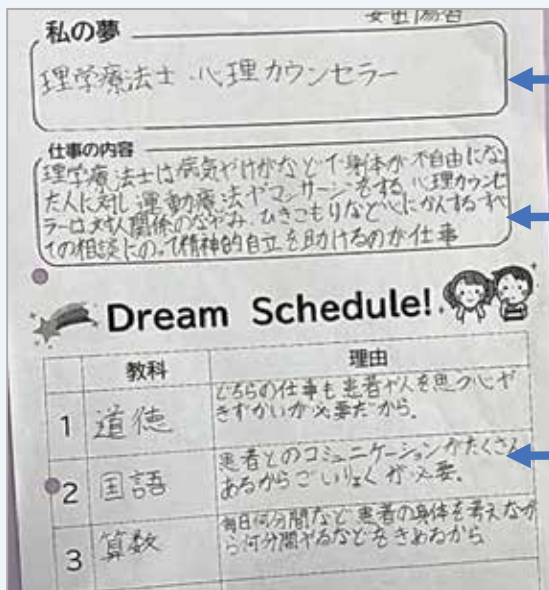 私の夢
理学療法士・心理カウンセラー
仕事の内容
理学療法士は病気やけがなどで身体が不自由になっ
た人に対し運動療法やマッサージをする。心理カウンセ
ラーは対人関係のなやみ、ひきこもりなど心にかんするすべ
ての相談にのって精神的自立を助けるのが仕事
Dream Schedule!
教科 理由
1 道徳 どちらの仕事も患者や人を思う心や
きずかいが必要だから。
2 国語 患者とのコミュニケーションがたくさん
あるからごいりょくが必要。
3 算数 毎日何分間など患者の身体を考えなが
ら何分間やるなどをきめるから